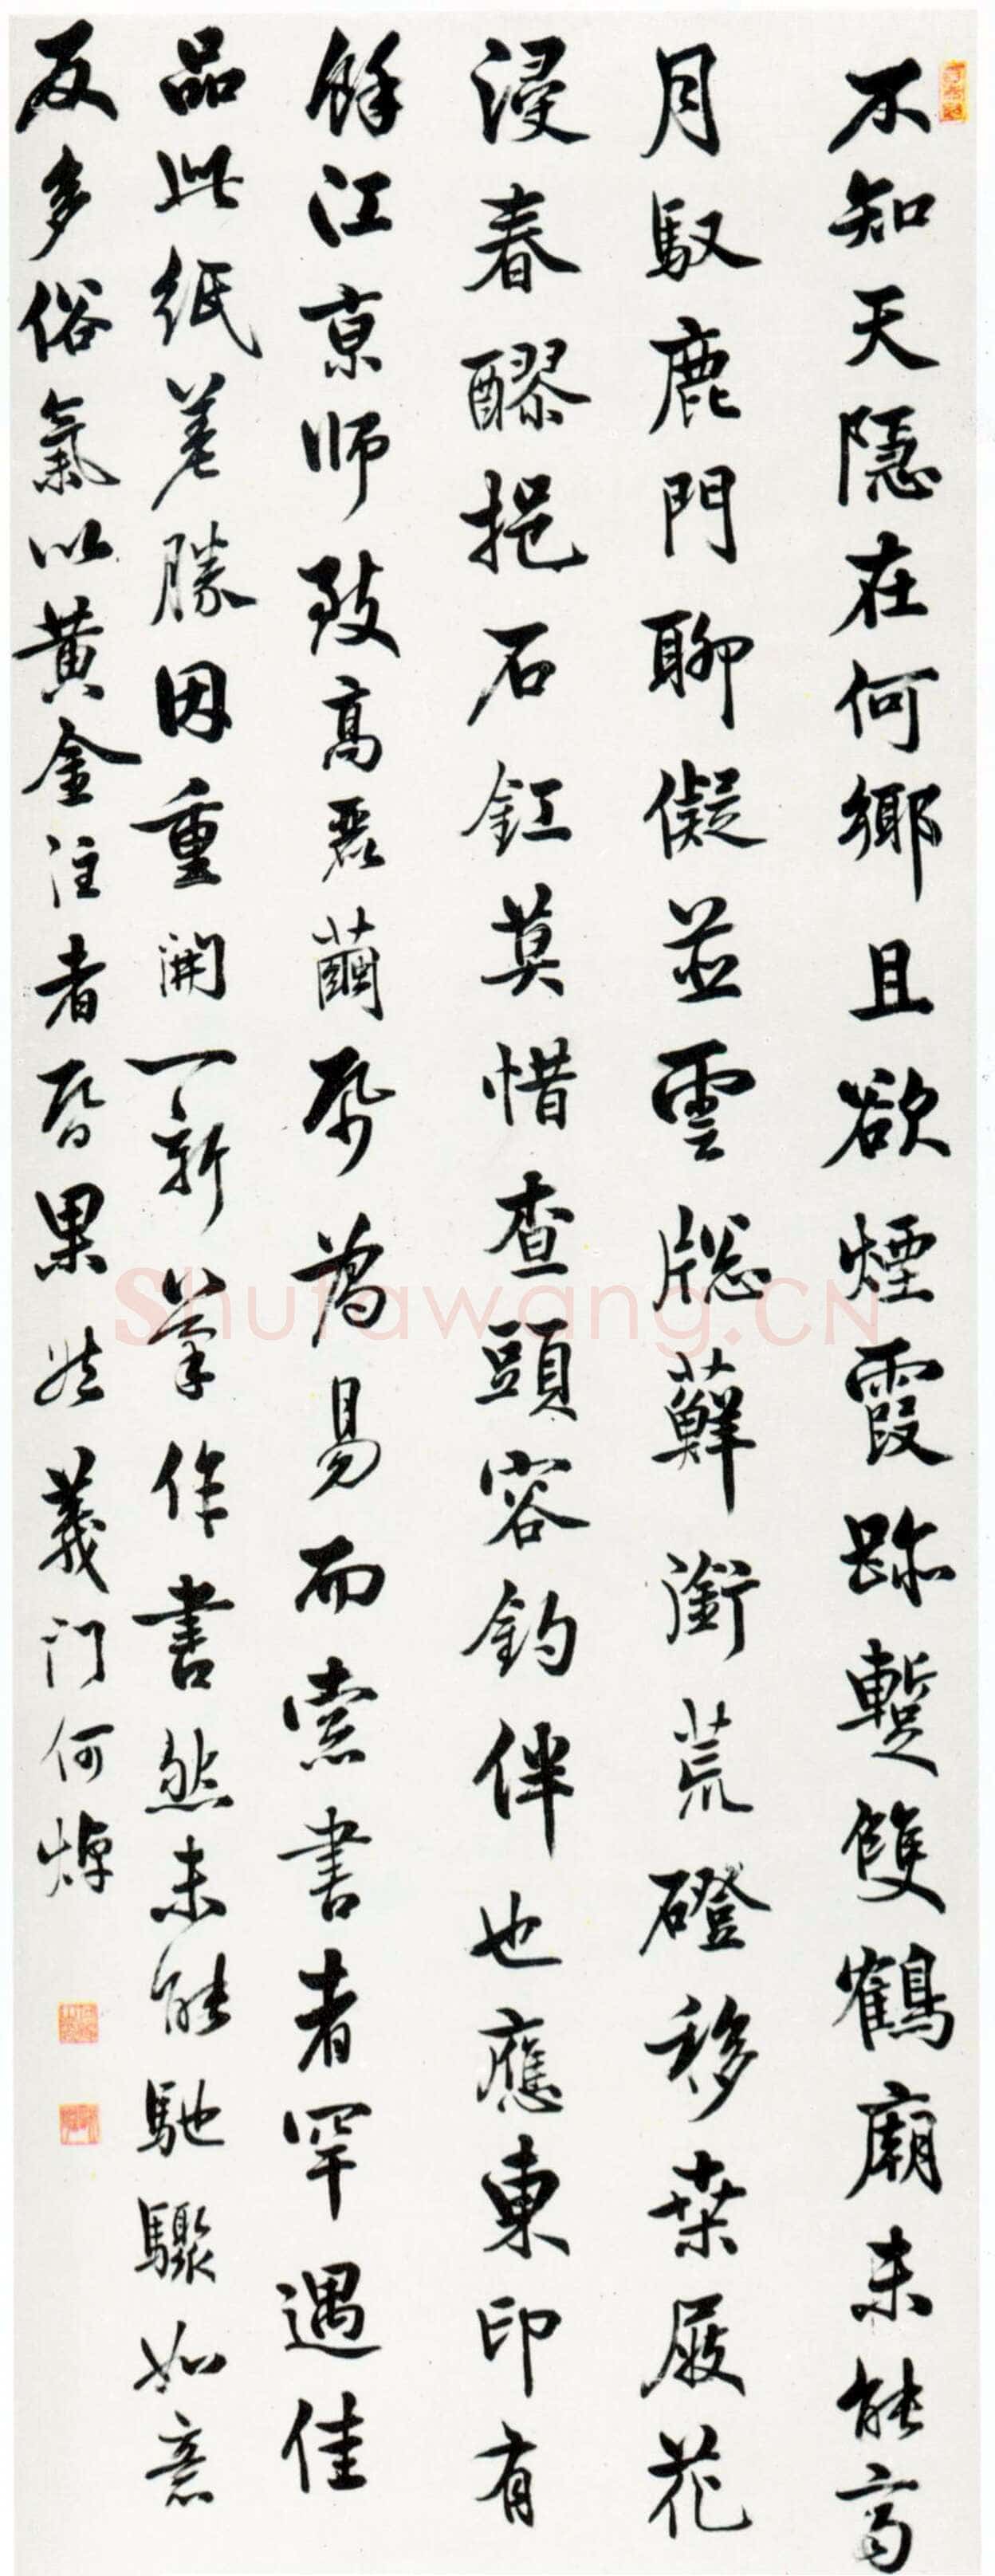 不知天隱在何鄉且欲煙霞跡蹔雙鶴廟未能高
月馭鹿門聊儗並雲牕蘚銜荒磴移桒屐花
浸春醪挹石缸莫惜查頭容釣伴也應東印有
餘江京師致高麗繭帋為易而索書者罕遇佳
品此紙差勝因重開一新筆作書然未能馳驟如意
反多俗氣以黃金注者昏果然義门何焯
Shufawang.CN